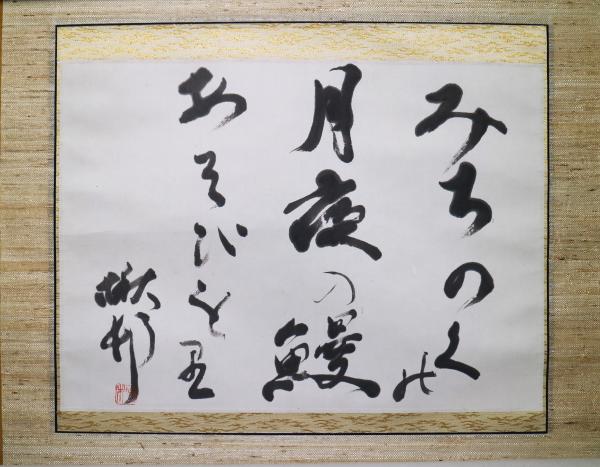 みちのくの
月夜の鰻
あそびを里
楸邨